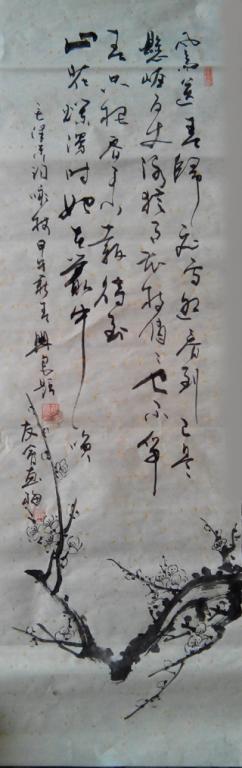 風雨送春歸飛雪迎春到已是
懸崖百丈冰猶有花枝俏俏也不爭
春只把春來報待到
山花爛漫時她在叢中笑
毛澤東詞咏梅甲午新春興
画梅